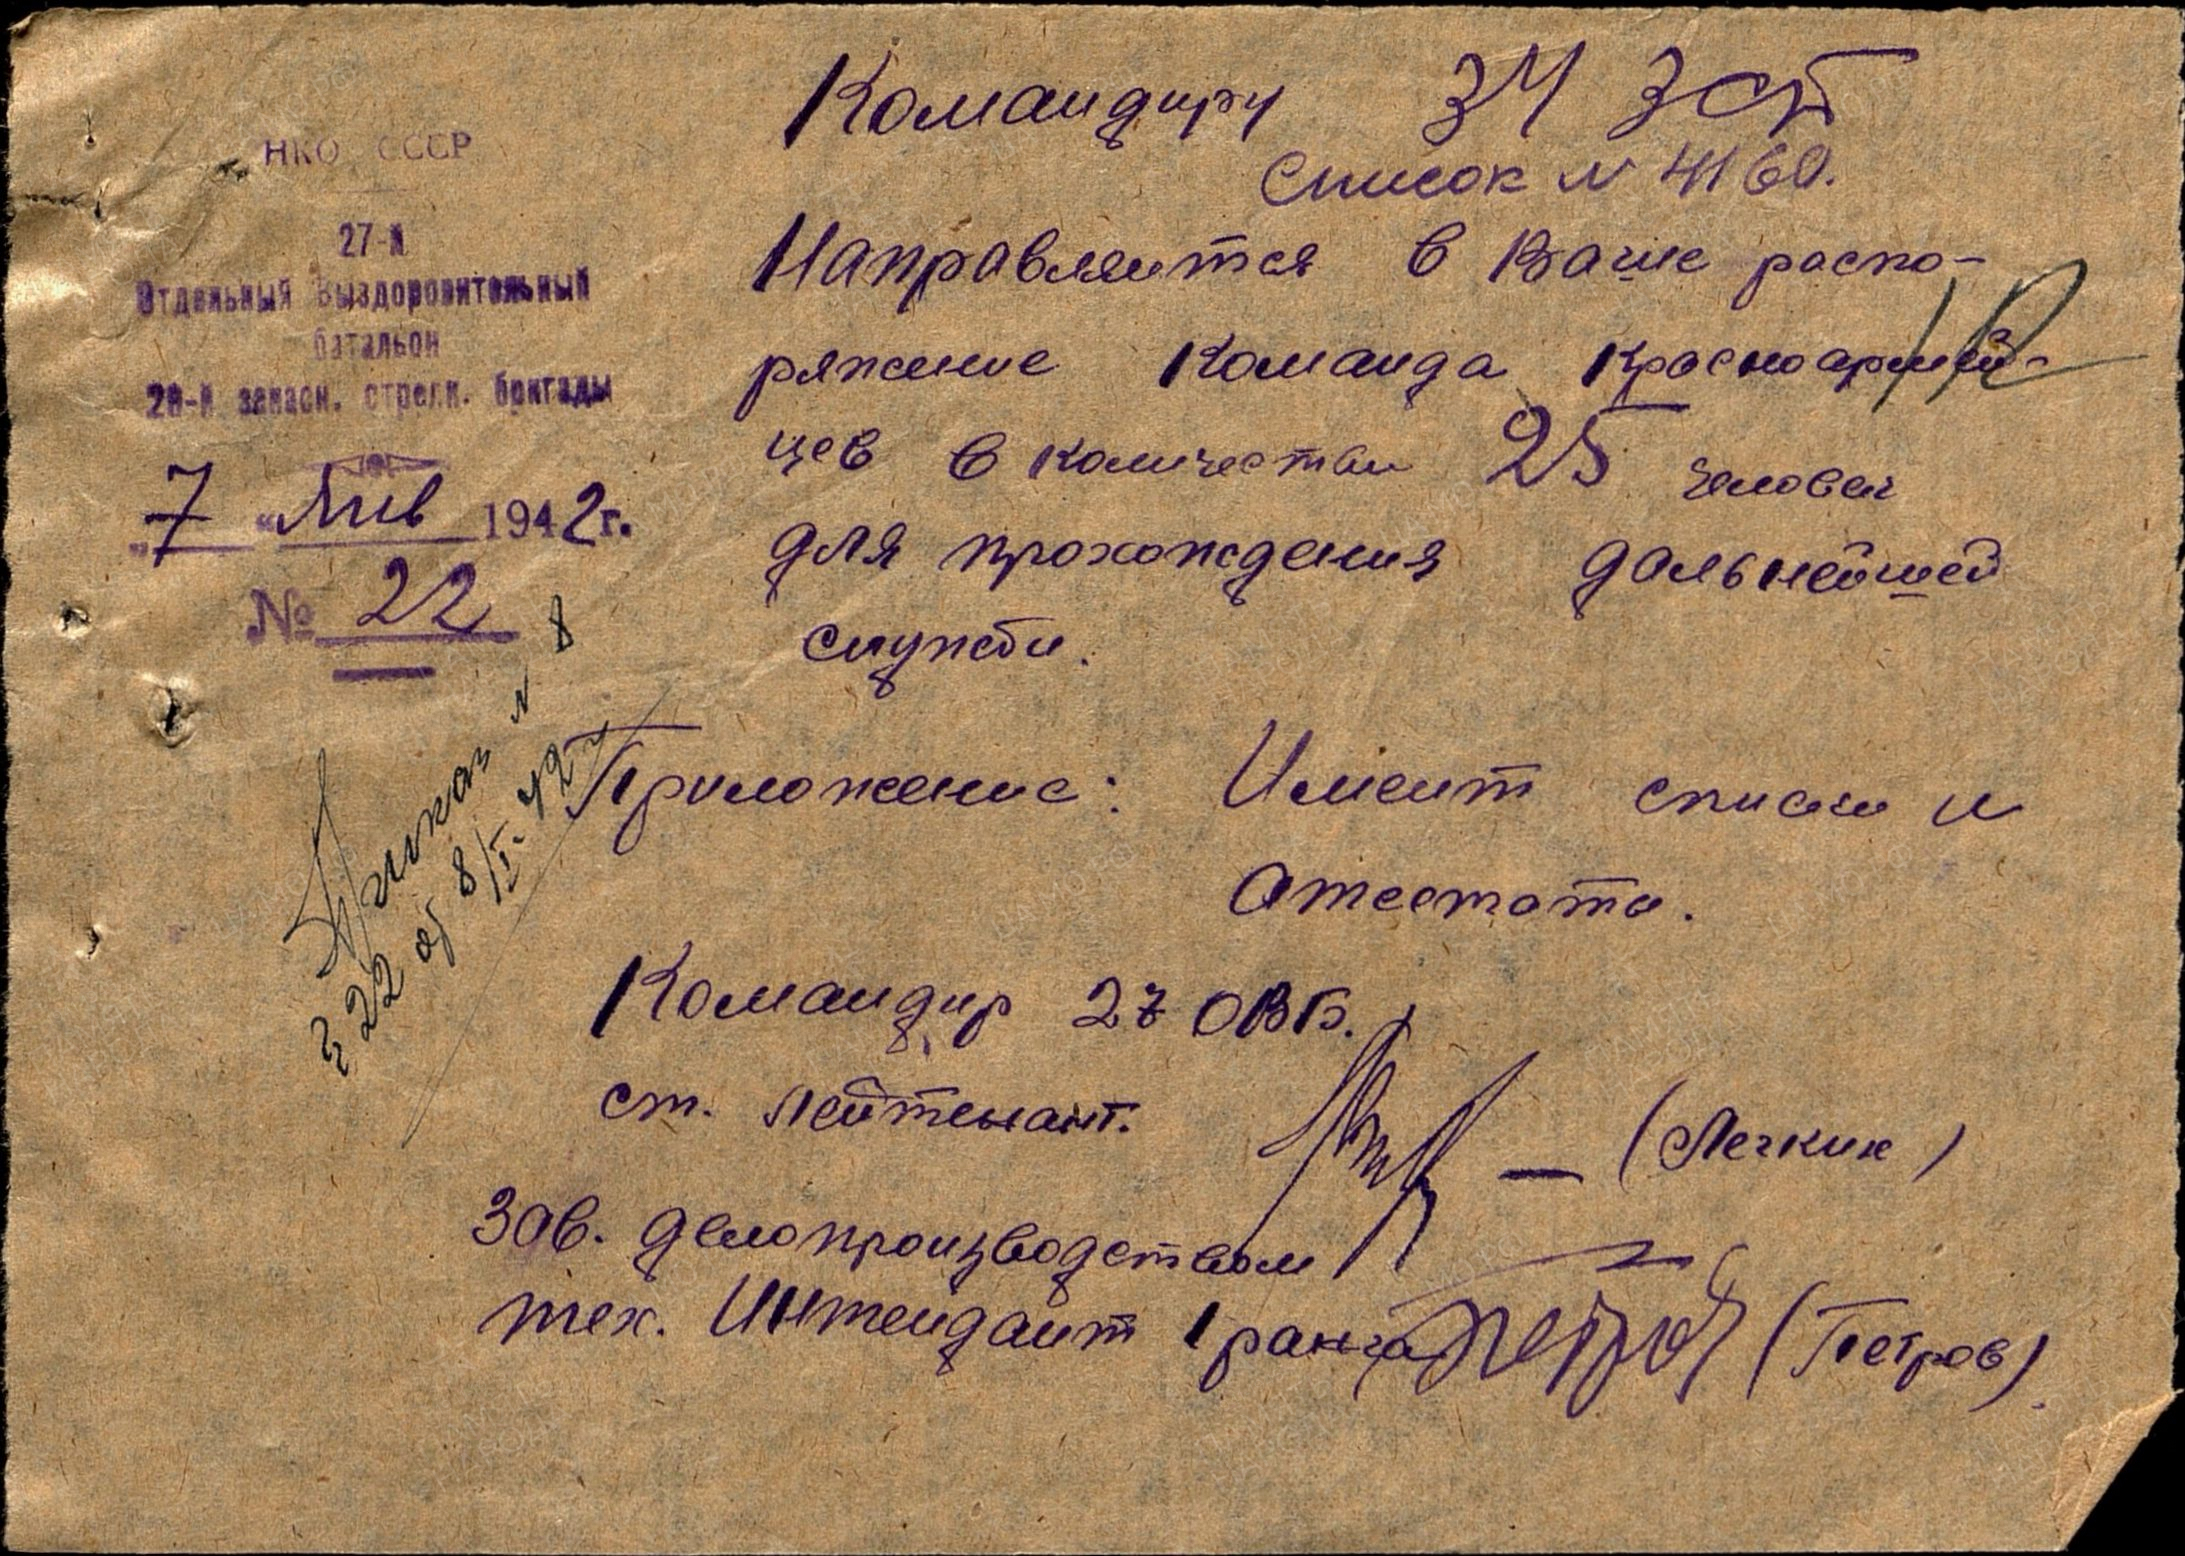 НКО СССР
27-й
Отдельный Выздоровительный
батальон
28-й запасн. стрелк. бригады
„7" Янв 1942г.
№ 22
Приказ N 8
§ 22 от 8/I-42г
Командиру 34 ЗСП
Список N 4160.
Направляется в Ваше распо-
ряжение Команда красноармей-
цев в количестве 25 человек
для прохождения дальнейшей
службы.
Приложение: Имеит списки и
атестаты.
Командир 27 ОВБ.
ст. лейтенант. — (Легкин)
Зав. делопроизводством
тех. Интендант 1 ранга Петров (Петров).